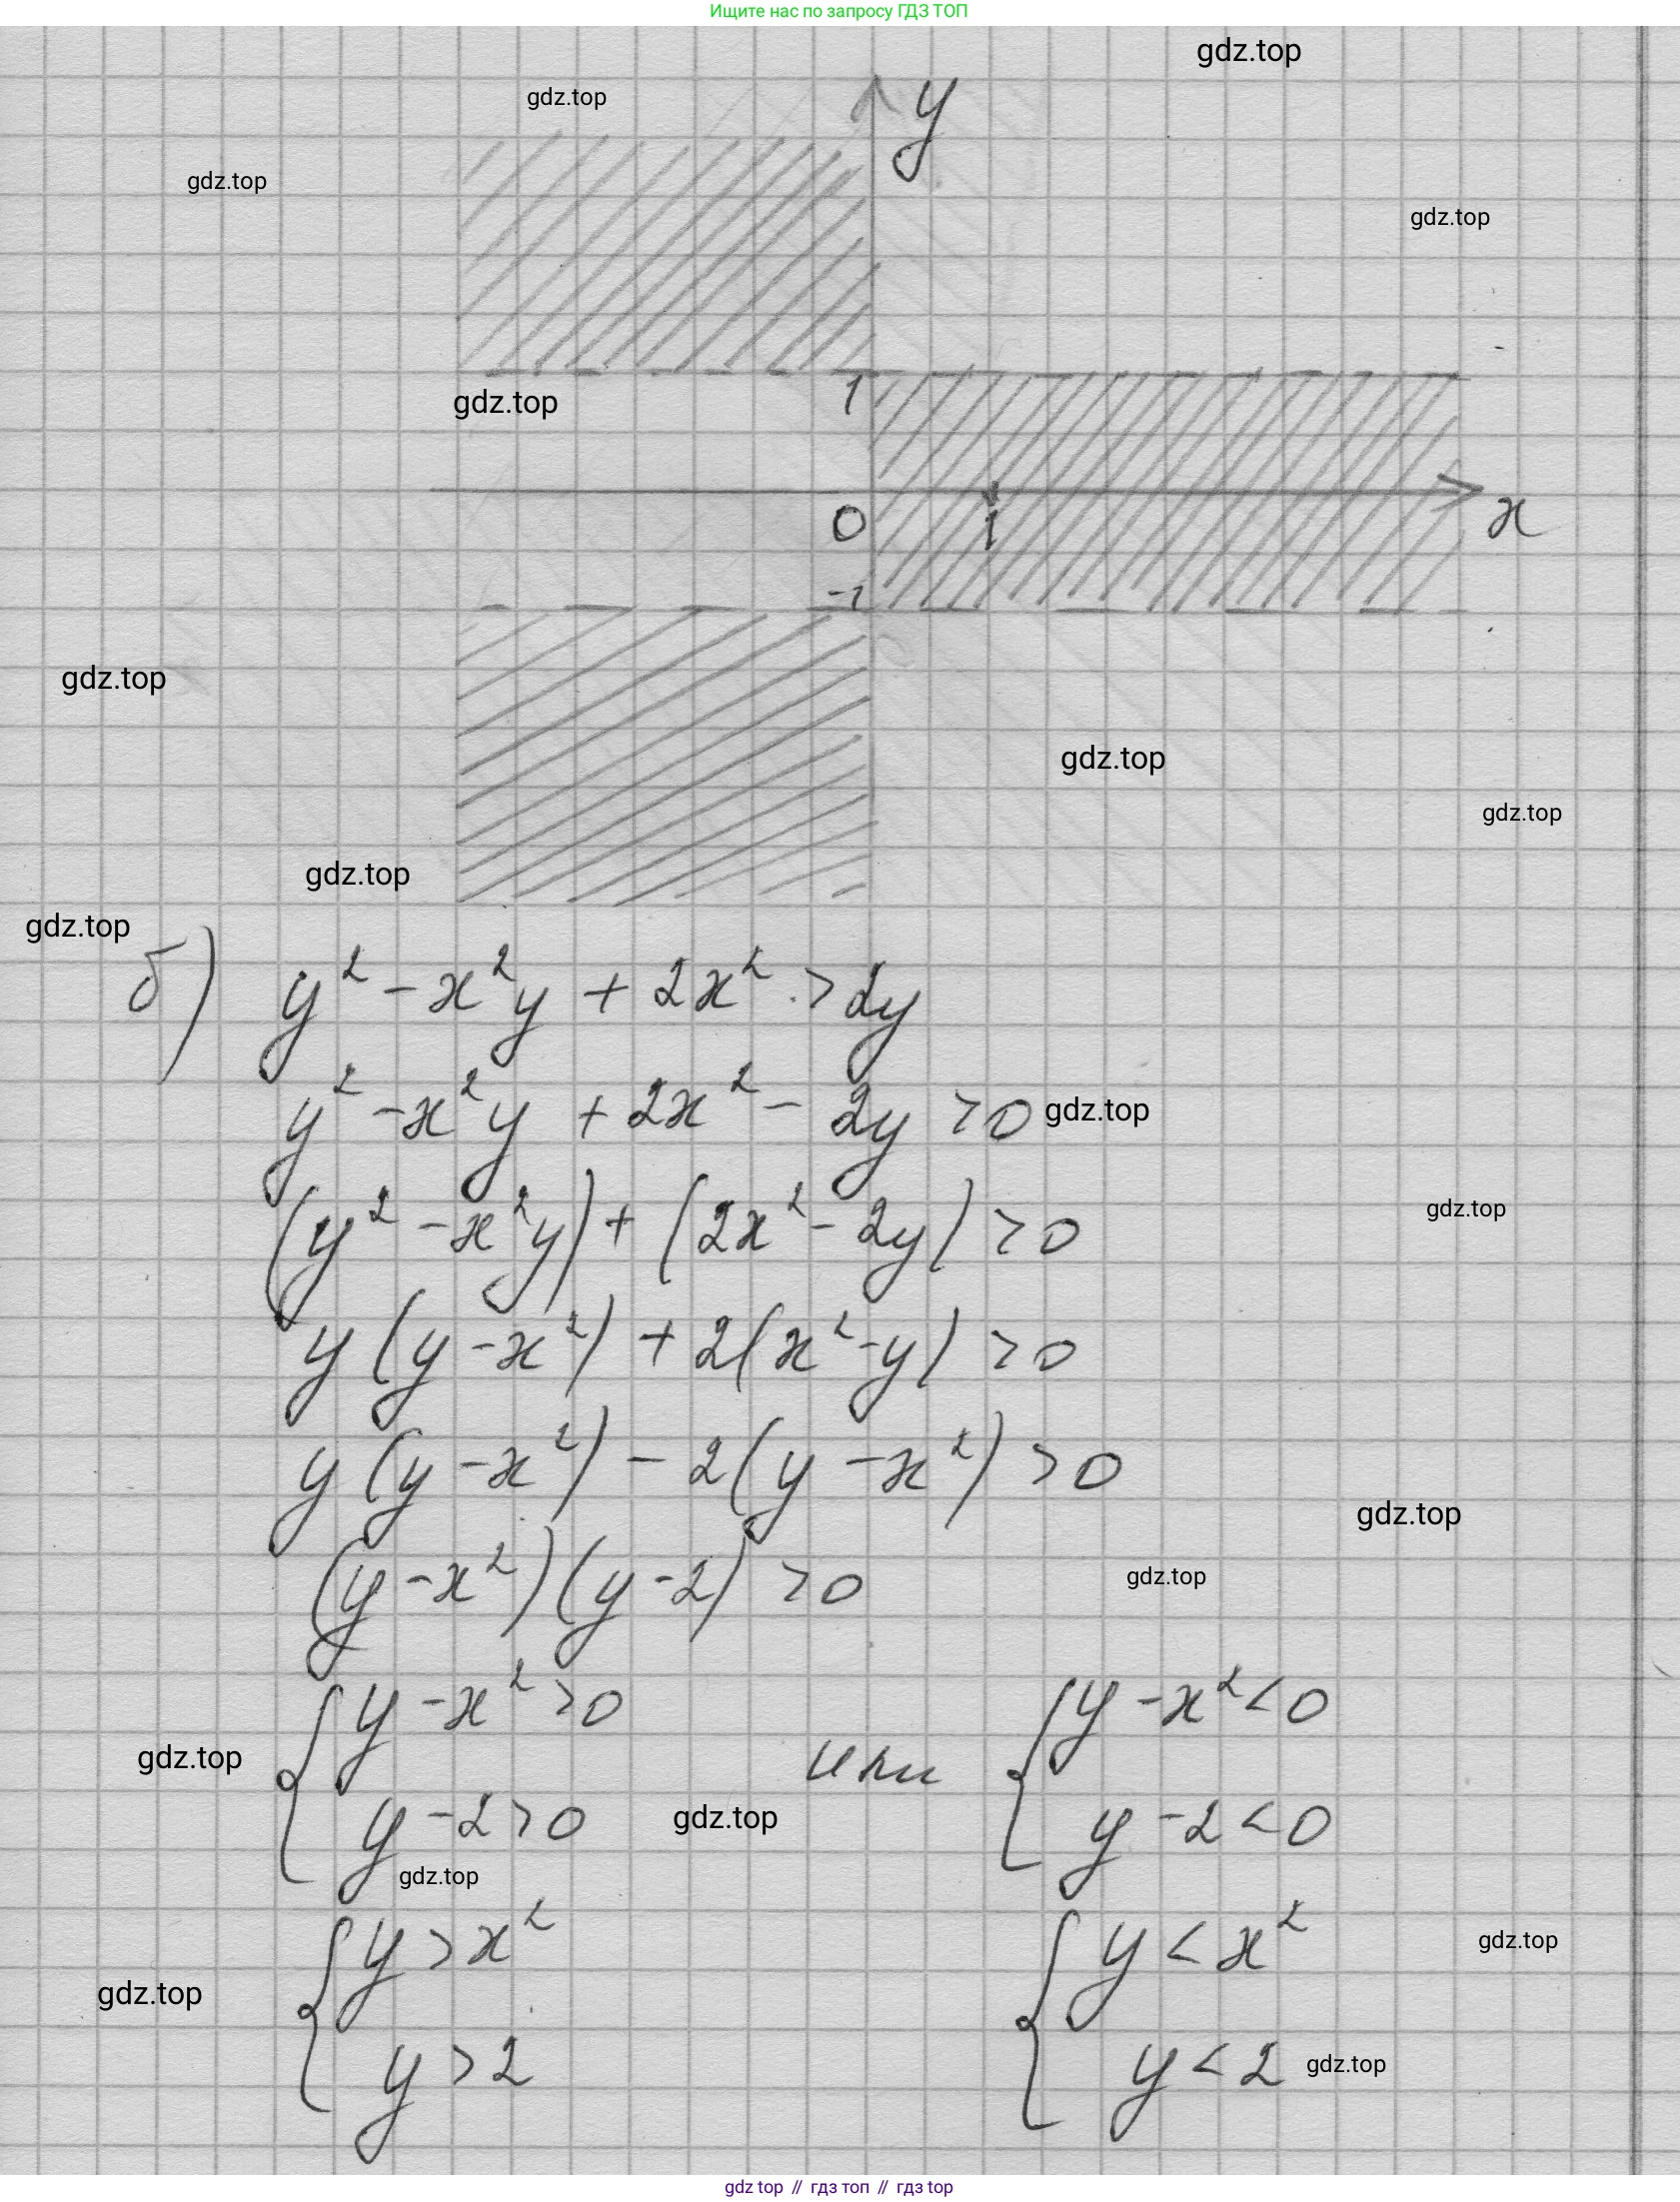 Ищите нас по запросу ГДЗ ТОП
gdz.top
y
gdz.top
gdz.top
gdz.top
gdz.top
1
0 1 x
-1
gdz.top
gdz.top
gdz.top
gdz.top
gdz.top
б) y² - x²y + 2x² > 2y
y² - x²y + 2x² - 2y > 0
gdz.top
(y² - x²y) + (2x² - 2y) > 0
gdz.top
y(y - x²) + 2(x² - y) > 0
y(y - x²) - 2(y - x²) > 0
gdz.top
(y - x²)(y - 2) > 0
gdz.top
{ y - x² > 0 или { y - x² < 0
gdz.top
y - 2 > 0 gdz.top y - 2 < 0
gdz.top
{ y > x² { y < x²
gdz.top
gdz.top
y > 2 y < 2 gdz.top
gdz top // гдз топ // гдз top